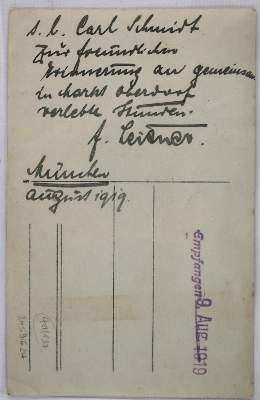 s. l. Carl Schmidt
Zur freundlichen
Erinnerung an gemeinsam
in Markt oberdorf
verlebte Stunden.
f. Leitner.
München
August 1919.
Empfangen 9. Aug. 1919